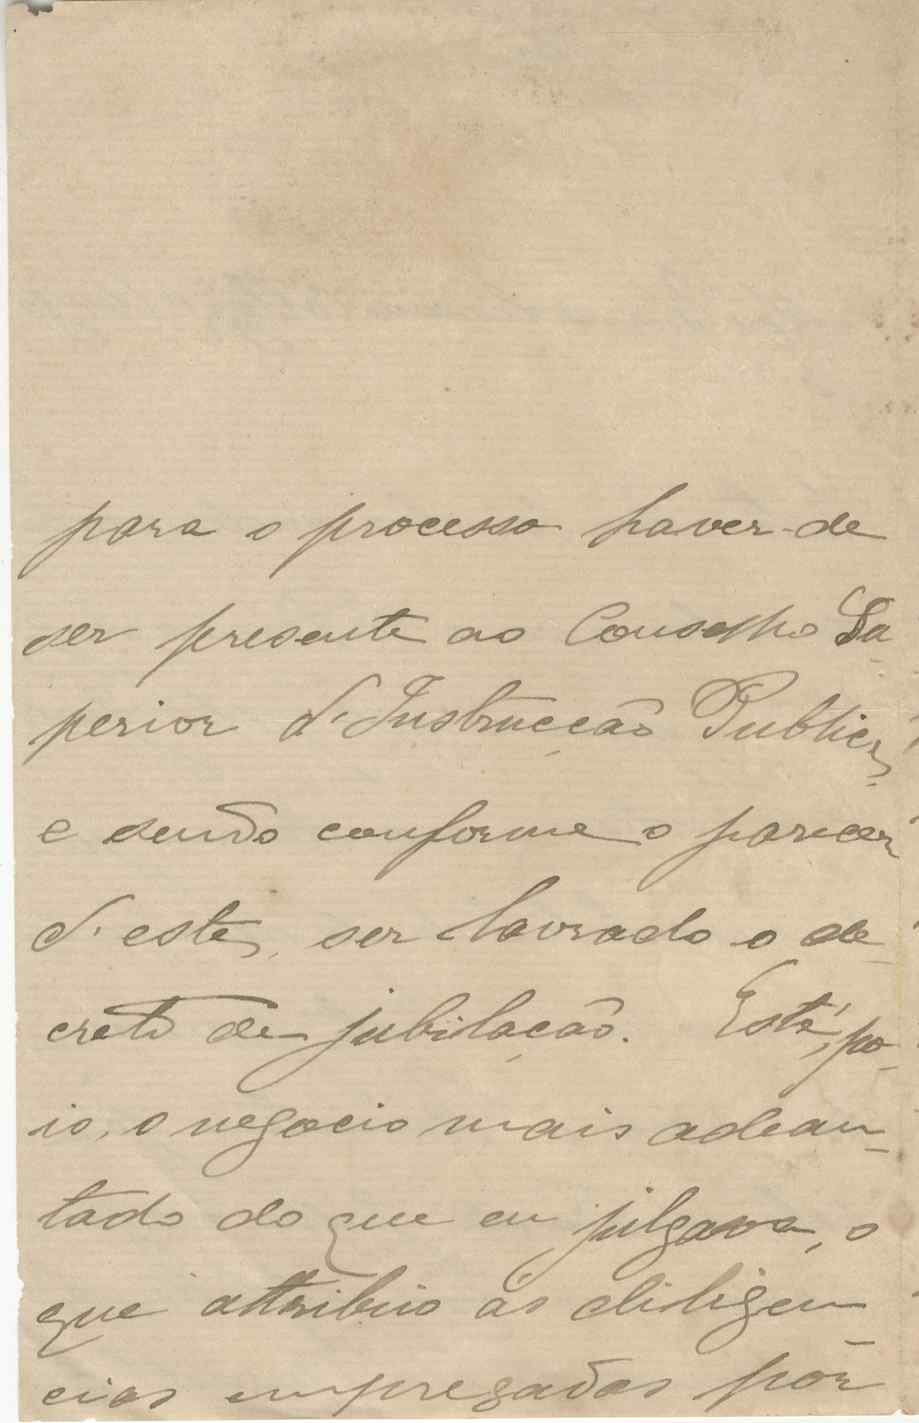 para o processo haver-de
ser presente ao Conselho Su-
perior d'Instrucção Publica,
e sendo conforme o parecer
d'este, ser lavrado o de-
creto de jubilação. Está, po-
is, o negocio mais adean-
tado do que eu julgava, o
que attribuo ás diligen-
cias empregadas por